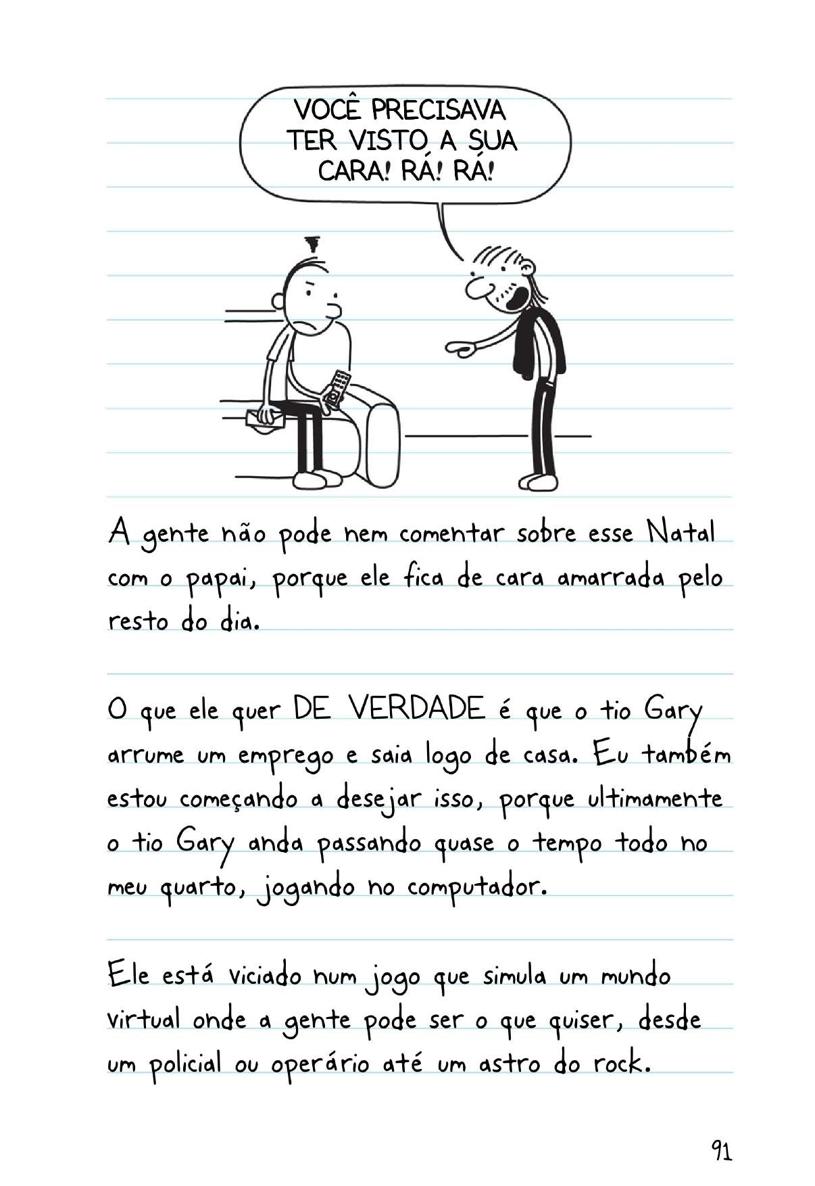 VOCÊ PRECISAVA
TER VISTO A SUA
CARA! RÁ! RÁ!
A gente não pode nem comentar sobre esse Natal
com o papai, porque ele fica de cara amarrada pelo
resto do dia.
O que ele quer DE VERDADE é que o tio Gary
arrume um emprego e saia logo de casa. Eu também
estou começando a desejar isso, porque ultimamente
o tio Gary anda passando quase o tempo todo no
meu quarto, jogando no computador.
Ele está viciado num jogo que simula um mundo
virtual onde a gente pode ser o que quiser, desde
um policial ou operário até um astro do rock.
91